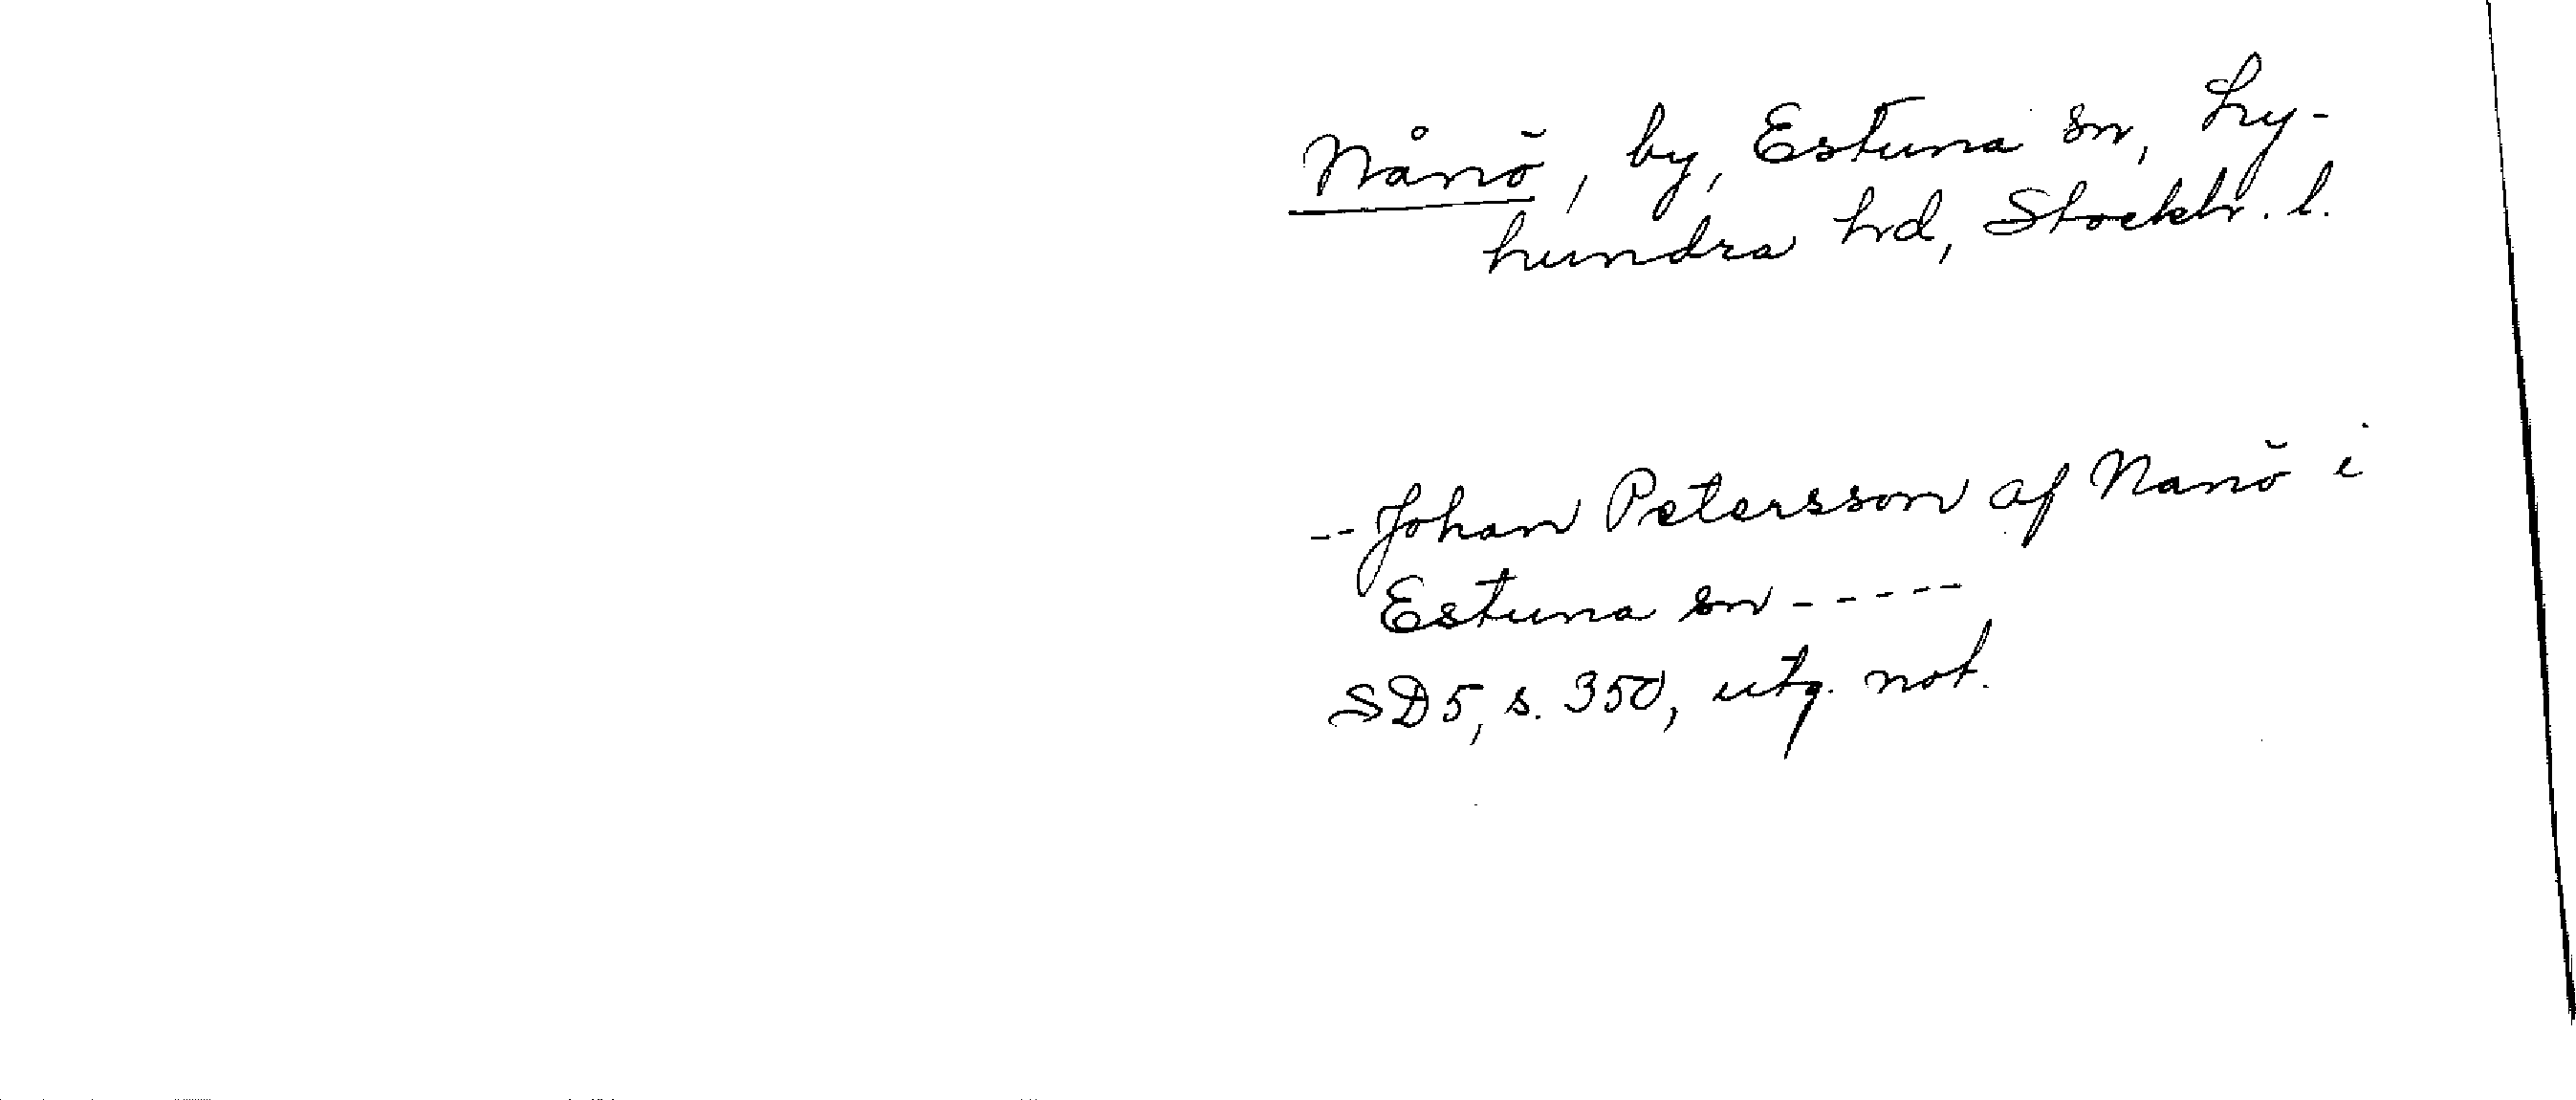 Nånö, by, Estuna sn, Ly-
hundra hd, Stockh. l.
-- Johan Petersson af Nanö i
Estuna sn -----
SD 5, s. 350, utg. not.